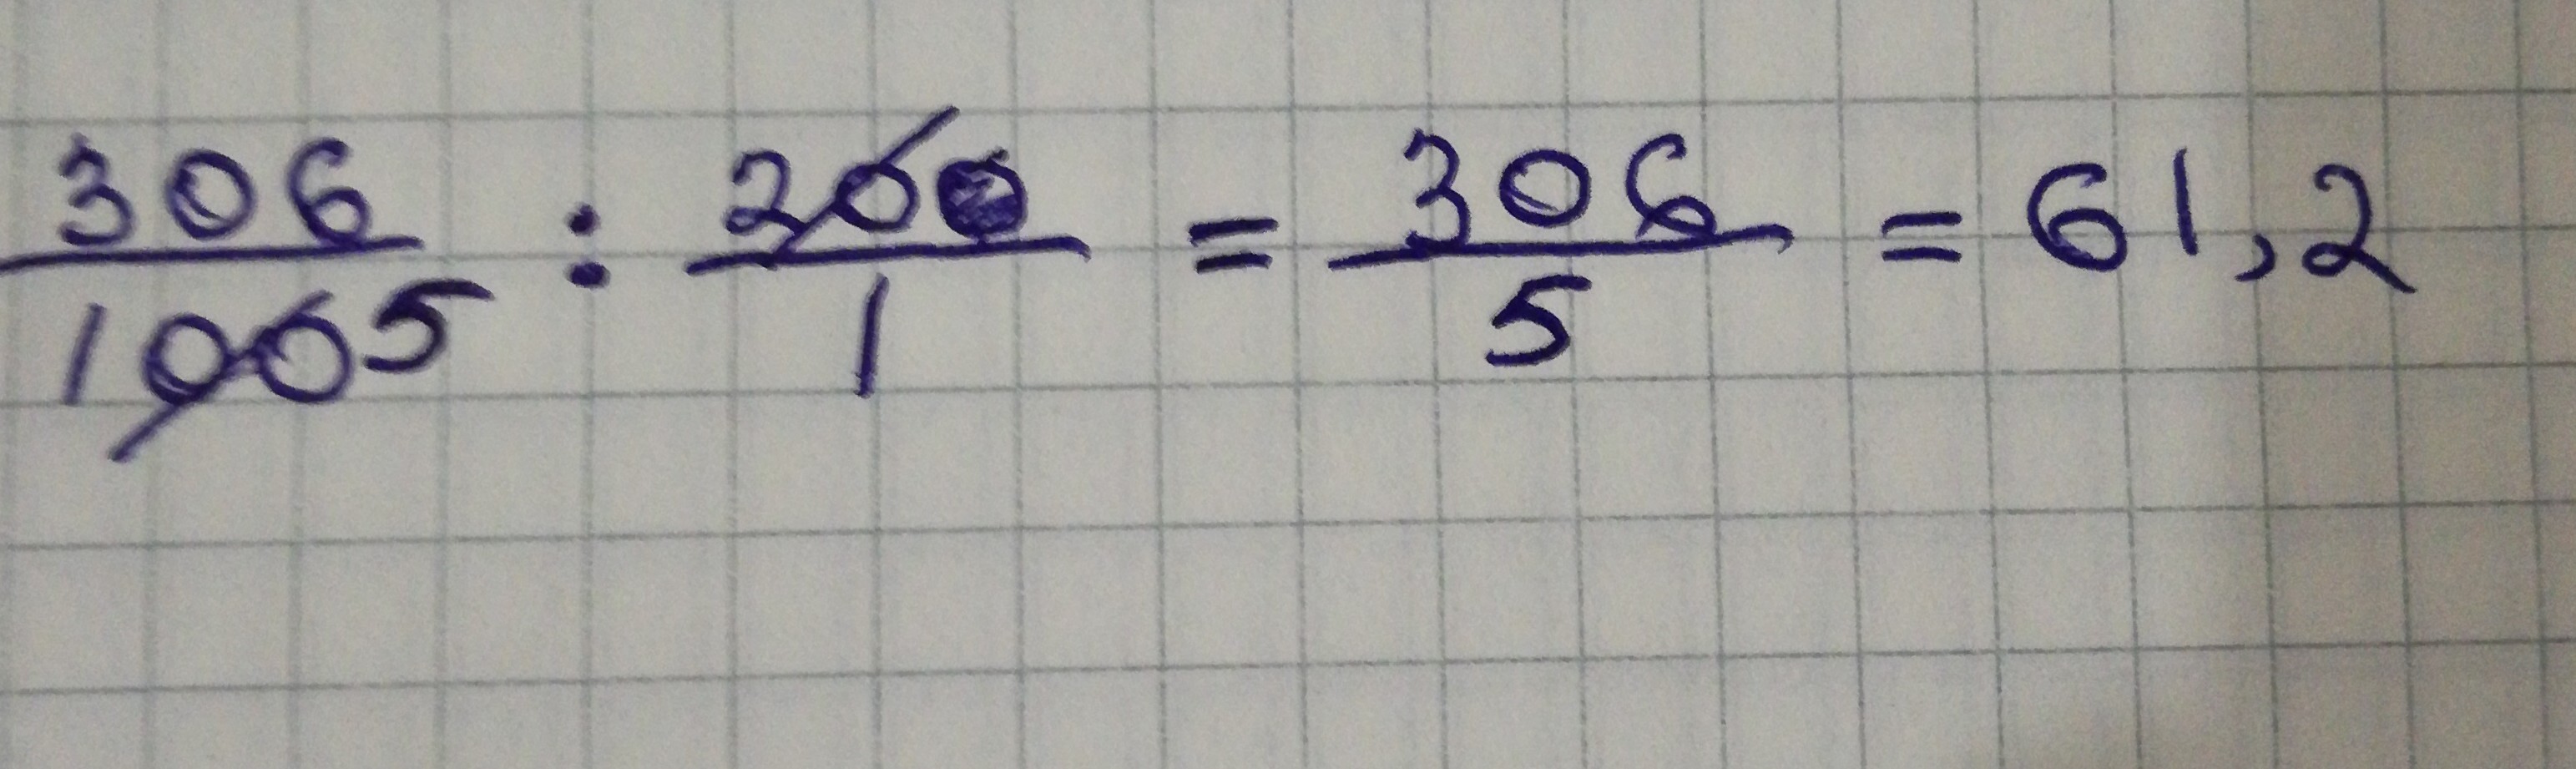 306/100 5 : 200/1 = 306/5 = 61,2